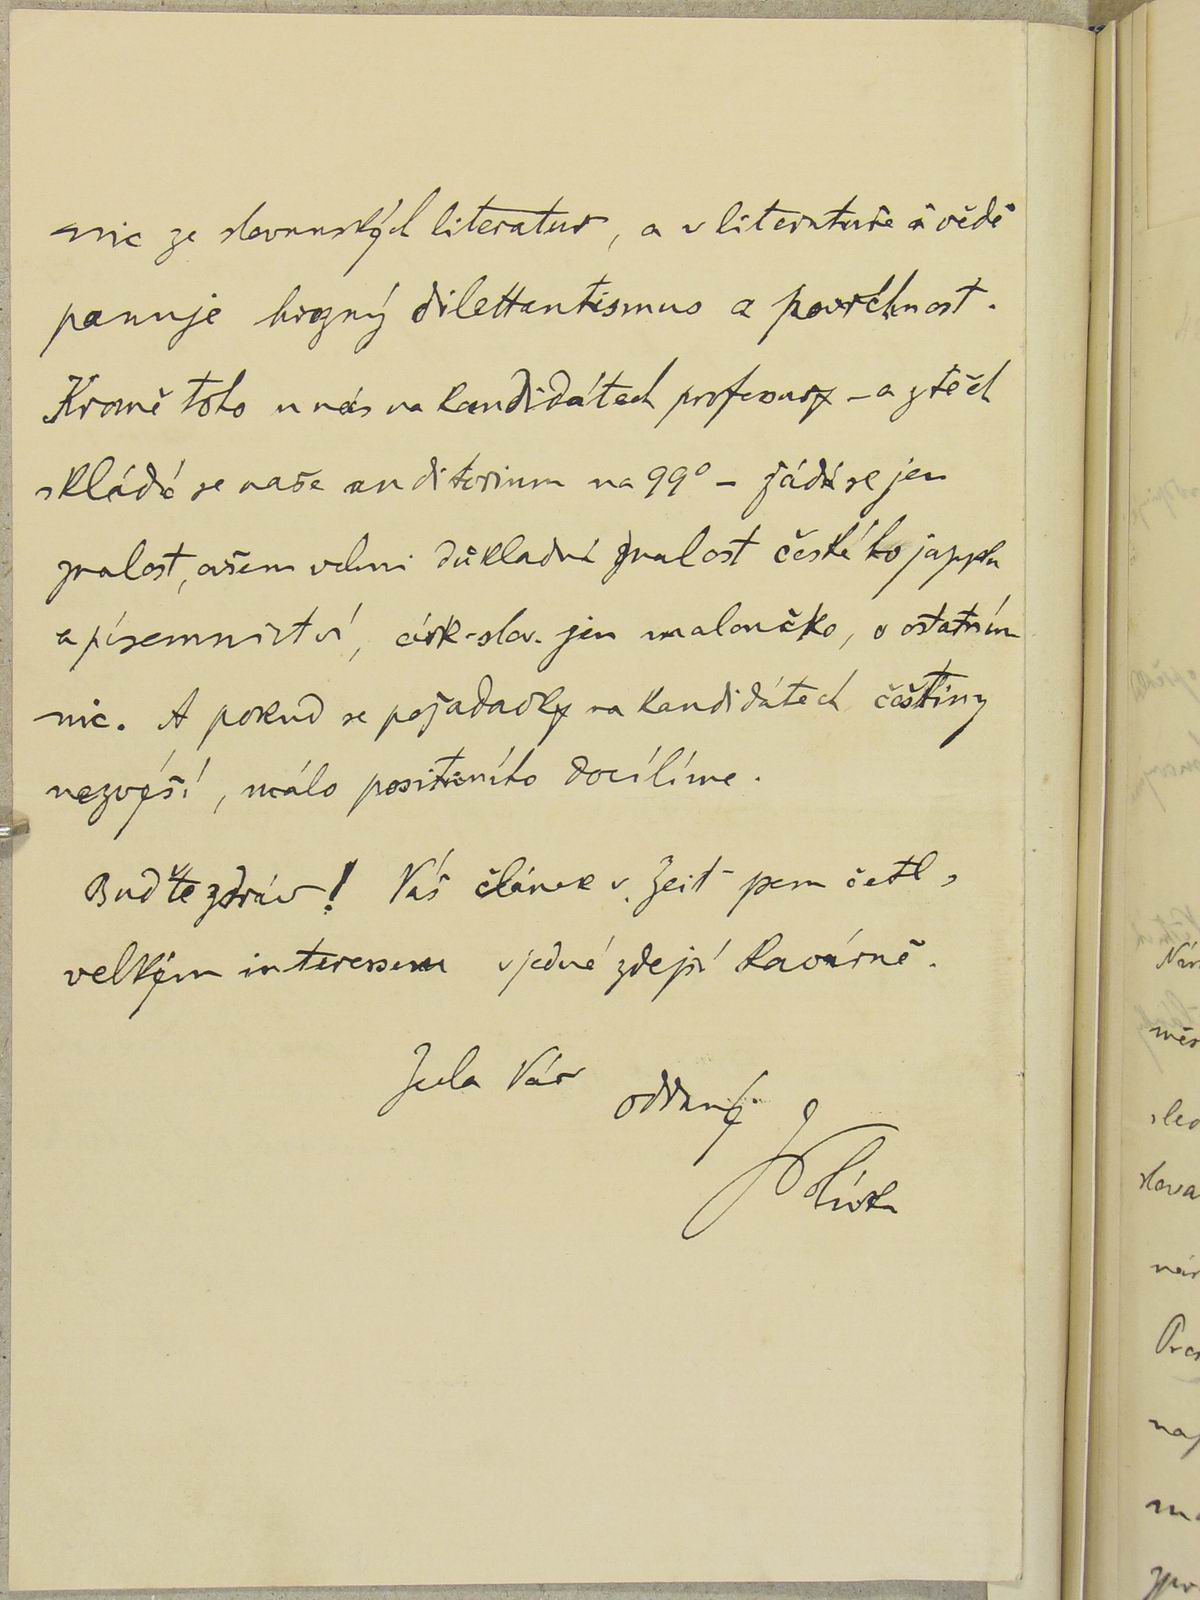 nic ze slovanských literatur, a v literatuře a vědě
panuje hrozný dilettantismus a povrchnost.
Kromě toho u nás na kandidátech professury – a z těch
skládá se naše auditorium na 99° – žádá se jen
znalost, ovšem velmi důkladná znalost českého jazyka
a písemnictví, cirk-slov. jen maloučko, o ostatním
nic. A pokud se požadavky na kandidátech češtiny
nezvýší, málo positivního docílíme.
Buďte zdráv! Váš článek v Zeit jsem četl s
velkým interessem v jedné zdejší kavárně.
Zcela Vás
oddaný
JPolívka
Nár
měs
sleo
slova
nár
na